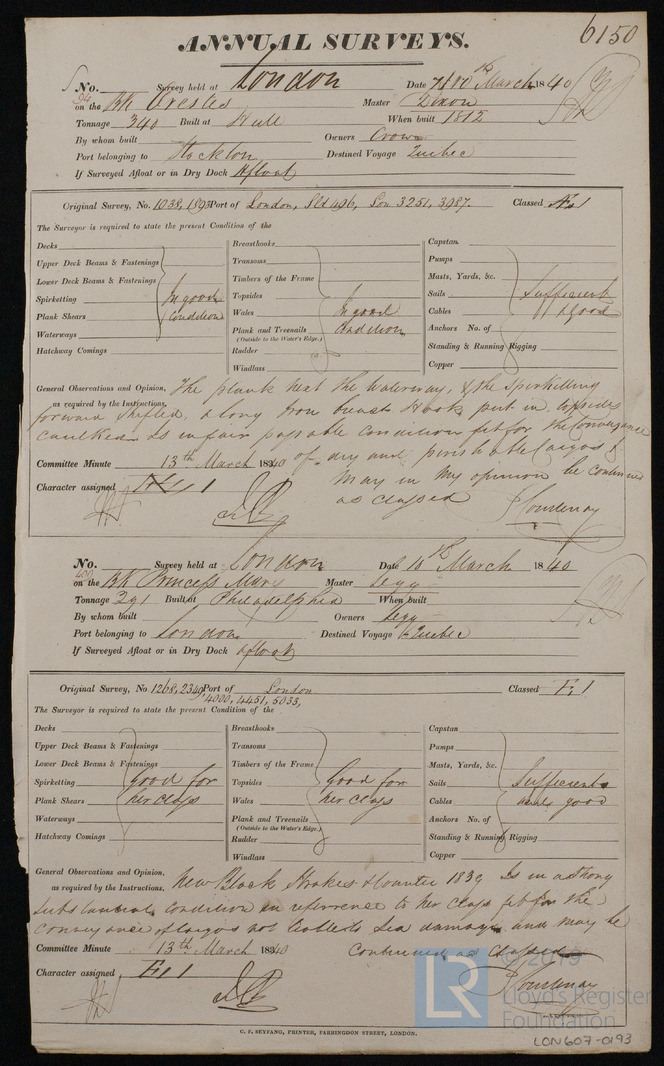 6150
ANNUAL SURVEYS.
No. Survey held at London Date March 1840
on the Bk Orestes Master Dixon
Tonnage 340 Built at Hull When built 1812
By whom built Owners Crow
Port belonging to Stockton Destined Voyage Quebec
If Surveyed Afloat or in Dry Dock Afloat
Original Survey, No. 1038, 1893 Port of London, Sld 496, Lon 3251, 3987. Classed Æ 1
The Surveyor is required to state the present Condition of the
Decks Breasthooks Capstan
Upper Deck Beams & Fastenings Transoms Pumps
Lower Deck Beams & Fastenings Timbers of the Frame Masts, Yards, &c.
Spirketting In good Topsides Sails Sufficient
Plank Shears Condition Wales In good Cables & good
Waterways Plank and Treenails Condition Anchors No. of
(Outside to the Water's Edge.)
Hatchway Comings Rudder Standing & Running Rigging
Windlass Copper
General Observations and Opinion, The plank next the Waterway, & the Spirketting
as required by the Instructions,
forward shifted, a long iron breast Hook put in, topsides
caulked. Is in fair passable condition fit for the Conveyance
Committee Minute 13th March 1840 of dry and perishable Cargos &
may in my opinion be continued
Character assigned Æ 1 as classed
P Courtenay
No. Survey held at London Date 10th March 1840
400
on the Bk Princess Mary Master Legg
Tonnage 391 Built at Philadelphia When built
By whom built Owners Legg
Port belonging to London Destined Voyage Quebec
If Surveyed Afloat or in Dry Dock Afloat
Original Survey, No. 1268, 2349, Port of London Classed E 1
4000, 4451, 5033,
The Surveyor is required to state the present Condition of the
Decks Breasthooks Capstan
Upper Deck Beams & Fastenings Transoms Pumps
Lower Deck Beams & Fastenings Timbers of the Frame Masts, Yards, &c.
Spirketting Good for Topsides Good for Sails Sufficient
Plank Shears her class Wales her class Cables and good
Waterways Plank and Treenails Anchors No. of
(Outside to the Water's Edge.)
Hatchway Comings Rudder Standing & Running Rigging
Windlass Copper
General Observations and Opinion, New Black Strakes & Counter 1839 Is in a strong
as required by the Instructions,
substantial condition in reference to her class fit for the
Conveyance of Cargos not liable to Sea damage and may be
Committee Minute 13th March 1840 Continued as Classed
Character assigned E 1 P Courtenay
C. F. SEYFANG, PRINTER, FARRINGDON STREET, LONDON.
LR © 2019
Lloyd's Register
Foundation
LON607-0193